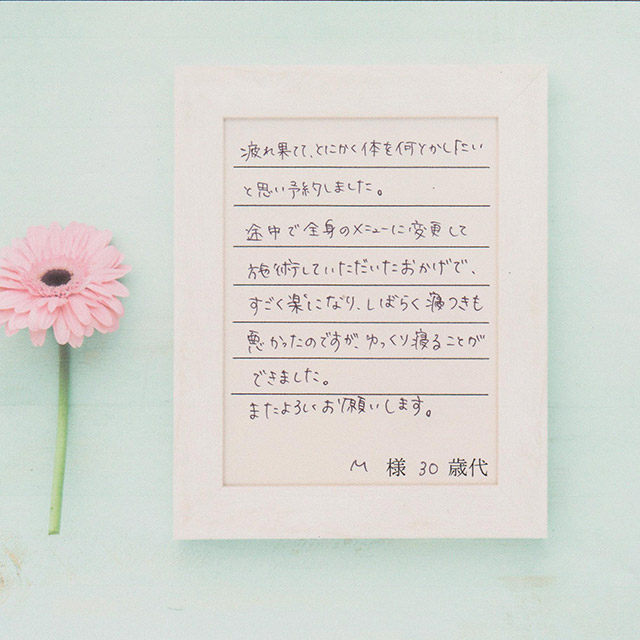 疲れ果てて、とにかく体を何とかしたい
と思い予約しました。
途中で全身のメニューに変更して
施術していただいたおかげで、
すごく楽になり、しばらく寝つきも
悪かったのですが、ゆっくり寝ることが
できました。
またよろしくお願いします。
M 様 30 歳代